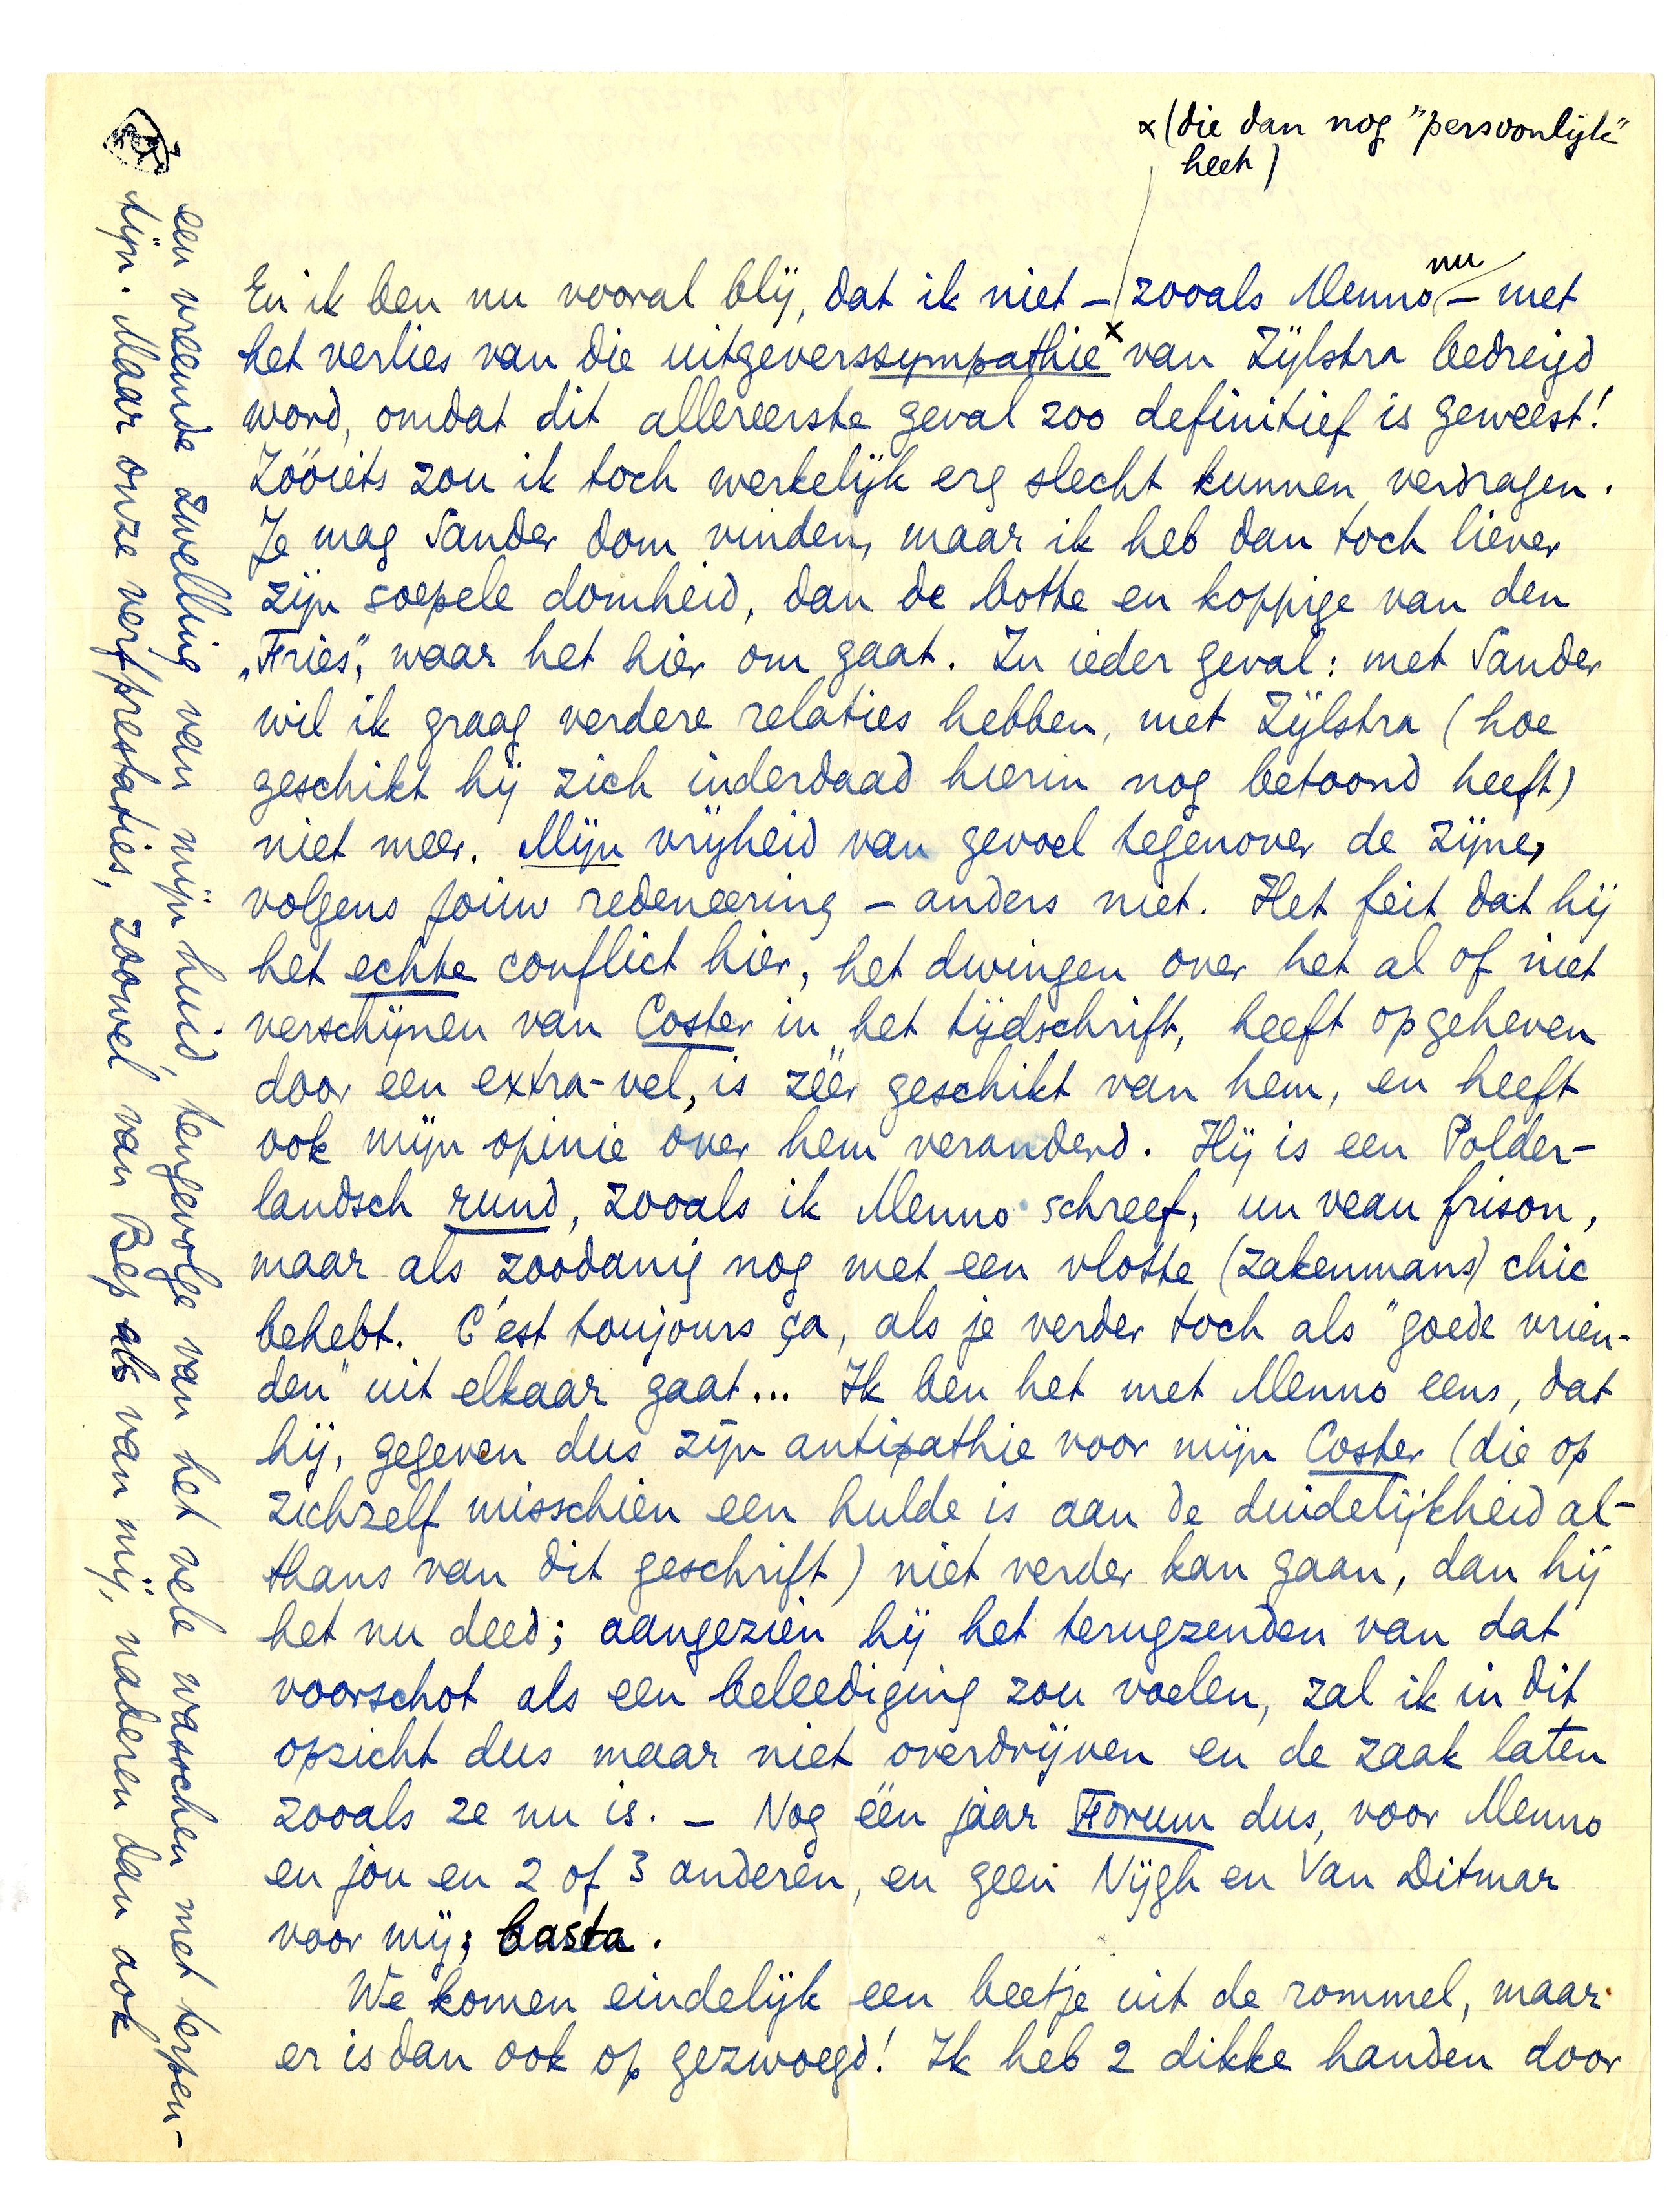 x (die dan nog "persoonlijk"
heet)
En ik ben nu vooral blij, dat ik niet – zooals Menno nu – met
het verlies van die uitgeverssympathie x van Zijlstra bedreigd
word, omdat dit allereerste geval zoo definitief is geweest!
Zóóiets zou ik toch werkelijk erg slecht kunnen verdragen.
Je mag Sander dom vinden, maar ik heb dan toch liever
zijn soepele domheid, dan de botte en koppige van den
„Fries”, waar het hier om gaat. In ieder geval: met Sander
wil ik graag verdere relaties hebben, met Zijlstra (hoe
geschikt hij zich inderdaad hierin nog betoond heeft)
niet meer. Mijn vrijheid van gevoel tegenover de zijne,
volgens jouw redeneering – anders niet. Het feit dat hij
het echte conflict hier, het dwingen over het al of niet
verschijnen van Coster in het tijdschrift, heeft opgeheven
door een extra-vel, is zéér geschikt van hem, en heeft
ook mijn opinie over hem veranderd. Hij is een Polder-
landsch rund, zooals ik Menno schreef, un veau frison,
maar als zoodanig nog met een vlotte (zakenmans) chic
behebt. C'est toujours ça, als je verder toch als "goede vrien-
den" uit elkaar gaat... Ik ben het met Menno eens, dat
hij, gegeven dus zijn antipathie voor mijn Coster (die op
zichzelf misschien een hulde is aan de duidelijkheid al-
thans van dit geschrift) niet verder kan gaan, dan hij
het nu deed; aangezien hij het terugzenden van dat
voorschot als een beleediging zou voelen, zal ik in dit
opzicht dus maar niet overdrijven en de zaak laten
zooals ze nu is. – Nog één jaar Forum dus, voor Menno
en jou en 2 of 3 anderen, en geen Nijgh en Van Ditmar
voor mij; basta.
We komen eindelijk een beetje uit de rommel, maar
er is dan ook op gezwoegd! Ik heb 2 dikke handen door
een vreemde zwelling van mijn huid, tengevolge van het vele wasschen met terpen-
tijn. Maar onze verfprestaties, zoowel van Bep als van mij, naderen dan ook